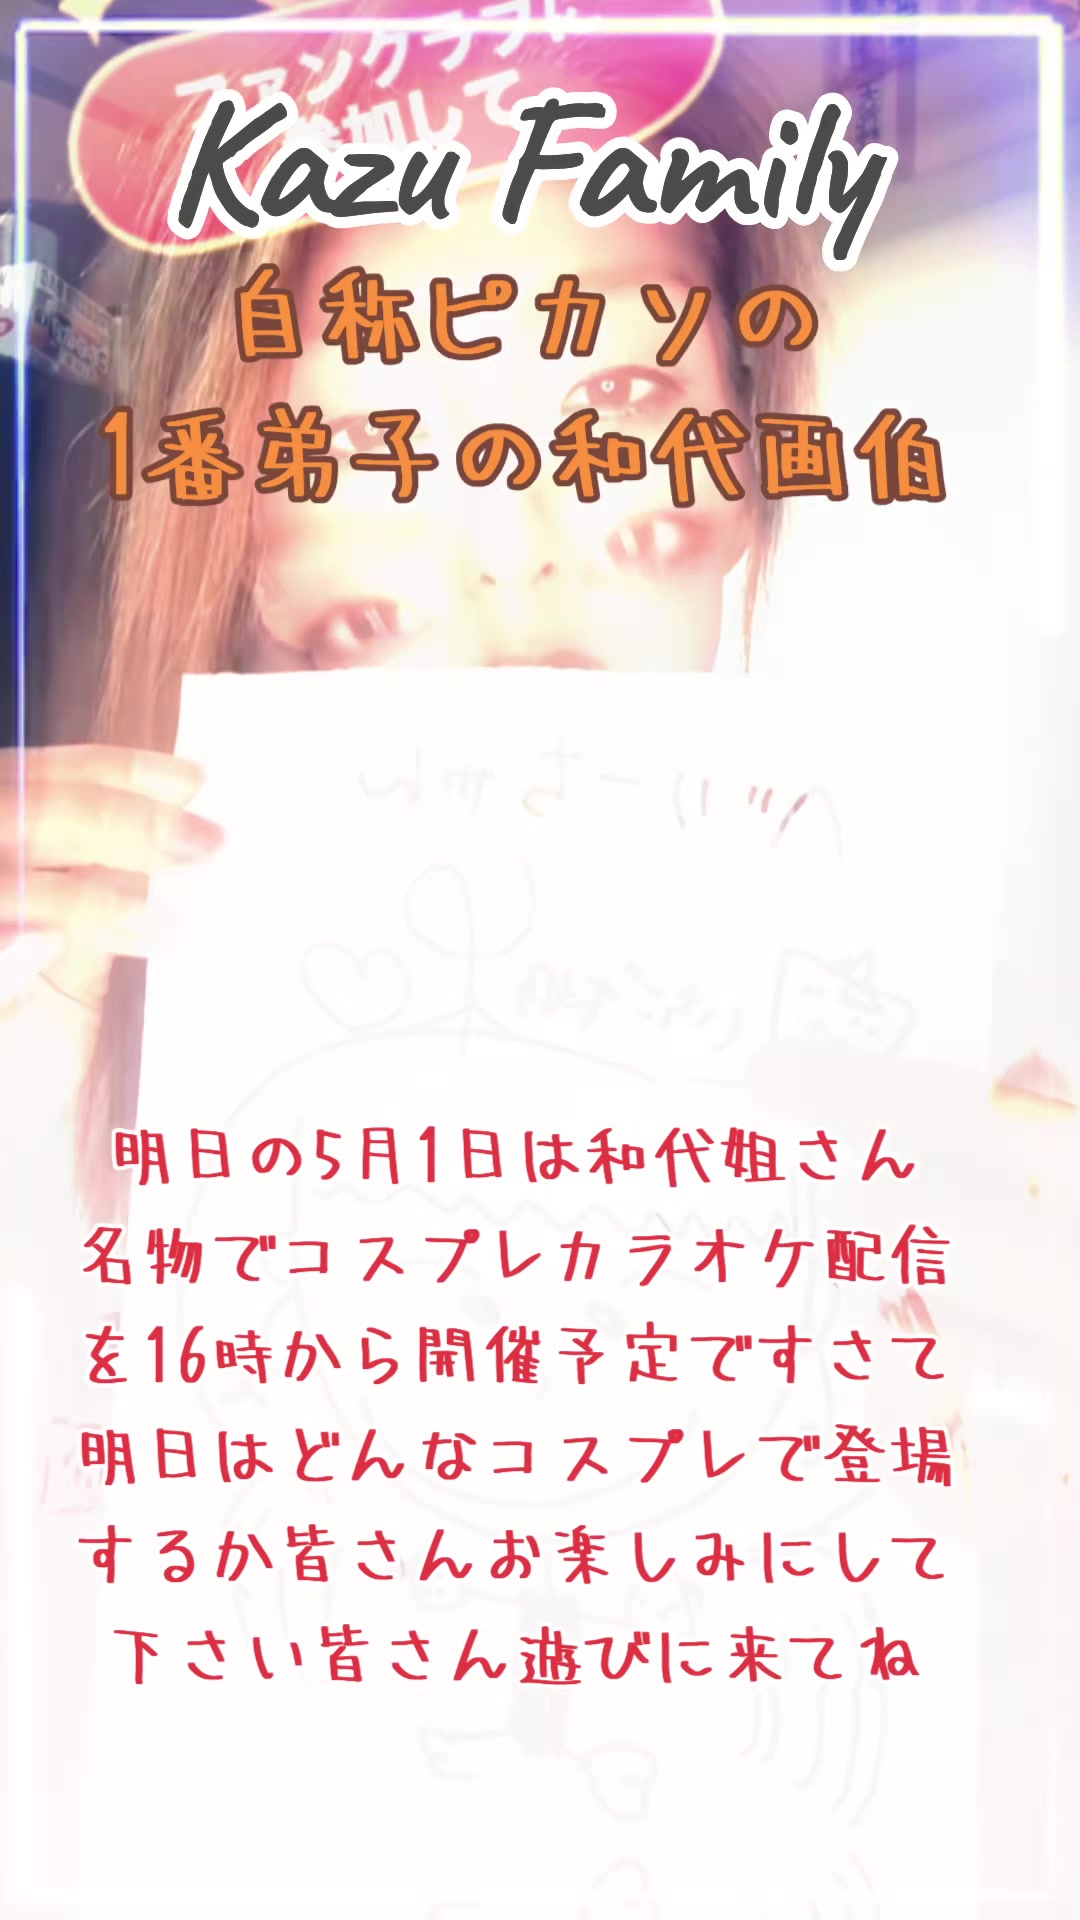 ファンクラブに
参加して
Kazu Family
自称ピカソの
1番弟子の和代画伯
べりーちゃん
明日の5月1日は和代姐さん
名物でコスプレカラオケ配信
を16時から開催予定ですさて
明日はどんなコスプレで登場
するか皆さんお楽しみにして
下さい皆さん遊びに来てね